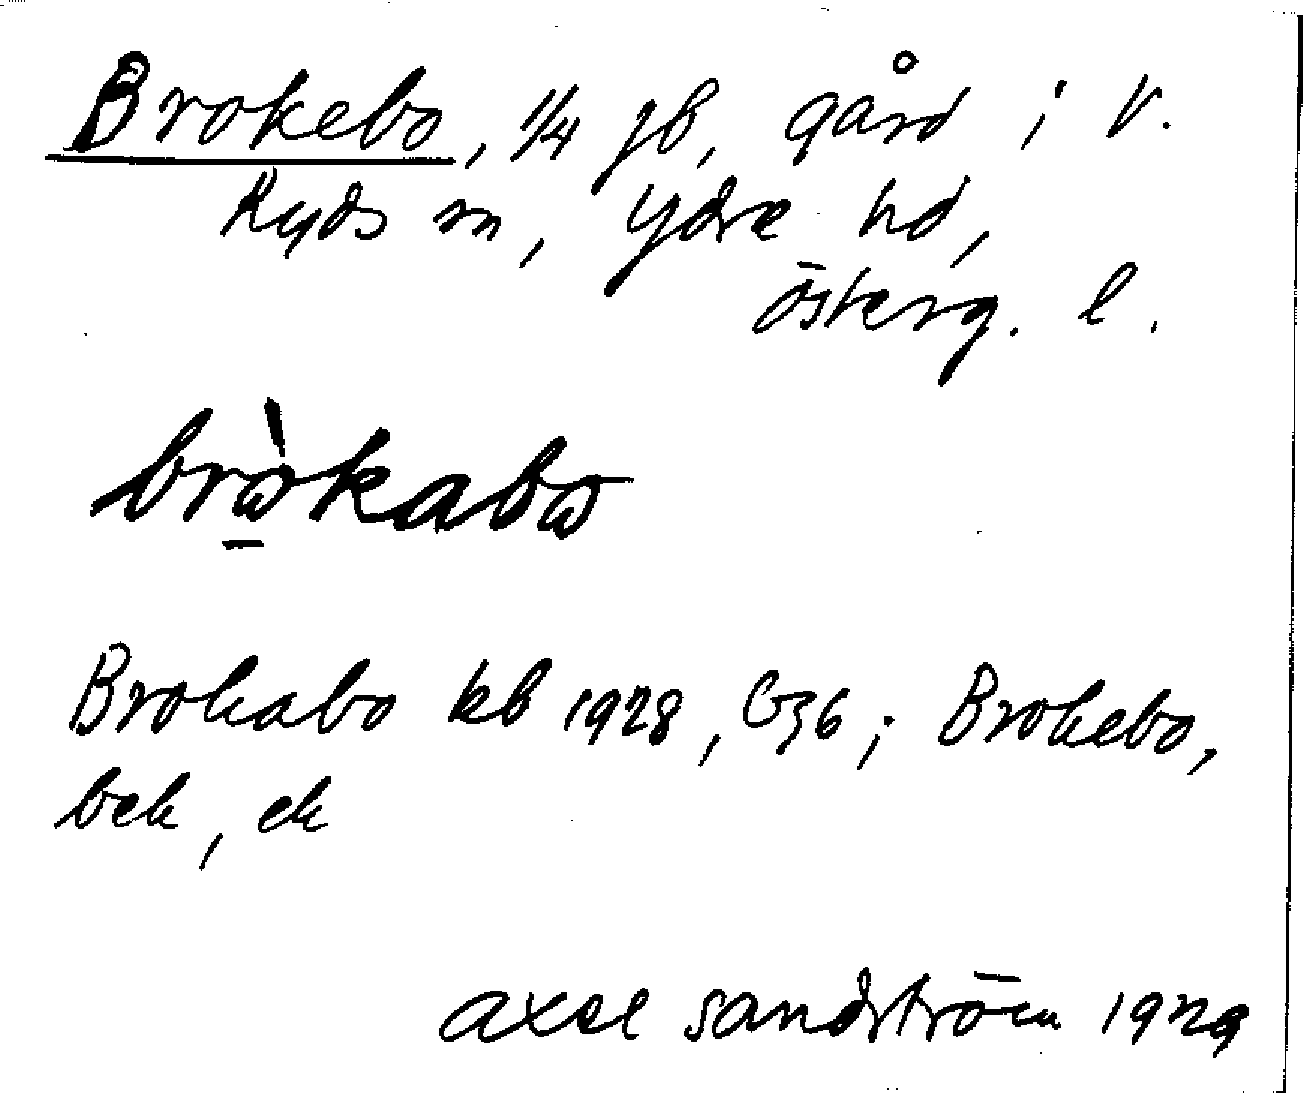 Brokebo, 1/4 jb, gård i V.
Ryds sn, Ydre hd,
Österg. l.
brɷ̀kabɷ
Brokabo kb 1928, G36; Brokebo,
bek, ek
Axel Sandström 1929